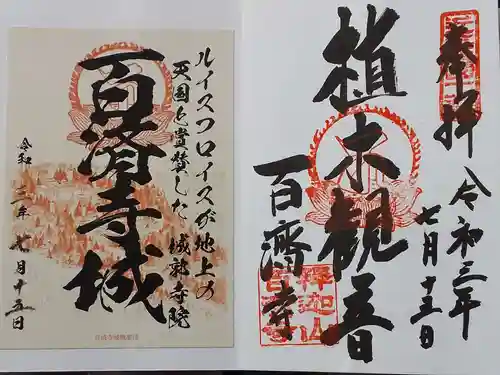 奉拝
令和三年
七月十五日
植木観音
百済寺
釋迦山
百済寺
ルイスフロイスが地上の
天国と賞賛した城郭寺院
百済寺城
令和三年七月十五日